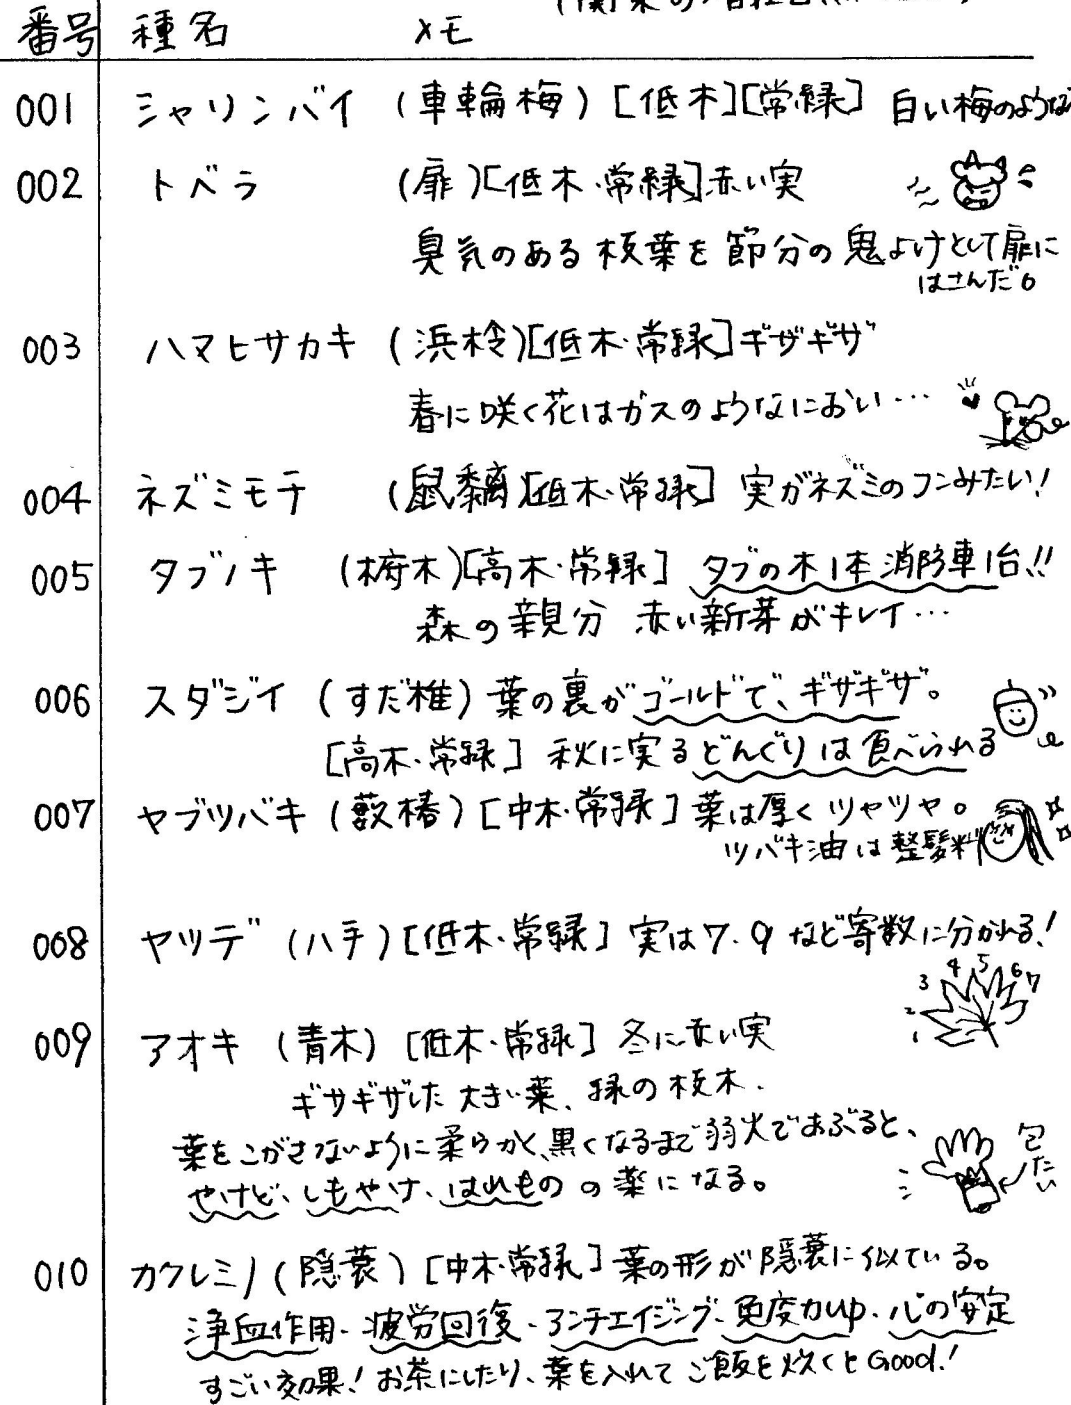 番号 種名 メモ
001 シャリンバイ (車輪梅) [低木][常緑] 白い梅のような
002 トベラ (扉)[低木・常緑]赤い実
臭気のある枝葉を節分の鬼よけとして扉に
はさんだ。
003 ハマヒサカキ (浜柃)[低木・常緑]ギザギザ
春に咲く花はガスのようなにおい…
004 ネズミモチ (鼠黐)[低木・常緑] 実がネズミのフンみたい!
005 タブノキ (椨木)[高木・常緑] タブの木1本消防車1台!!
森の親分 赤い新葉がキレイ…
006 スダジイ (すだ椎) 葉の裏がゴールドで、ギザギザ。
[高木・常緑] 秋に実るどんぐりは食べられる
007 ヤブツバキ (藪椿) [中木・常緑] 葉は厚くツヤツヤ。
ツバキ油は整髪料
008 ヤツデ (八手) [低木・常緑] 実は7.9など寄数に分かれる!
1 2 3 4 5 6 7
009 アオキ (青木) [低木・常緑] 冬に赤い実
ギザギザした大きい葉、緑の枝木.
葉をこがさないように柔らかく、黒くなるまで弱火であぶると、
やけど、しもやけ、はれものの薬になる。
010 カクレミノ (隠蓑) [中木・常緑] 葉の形が隠蓑に似ている。
浄血作用・疲労回復・アンチエイジング・免疫力up・心の安定
すごい効果! お茶にしたり、葉を入れてご飯を炊くとGood!